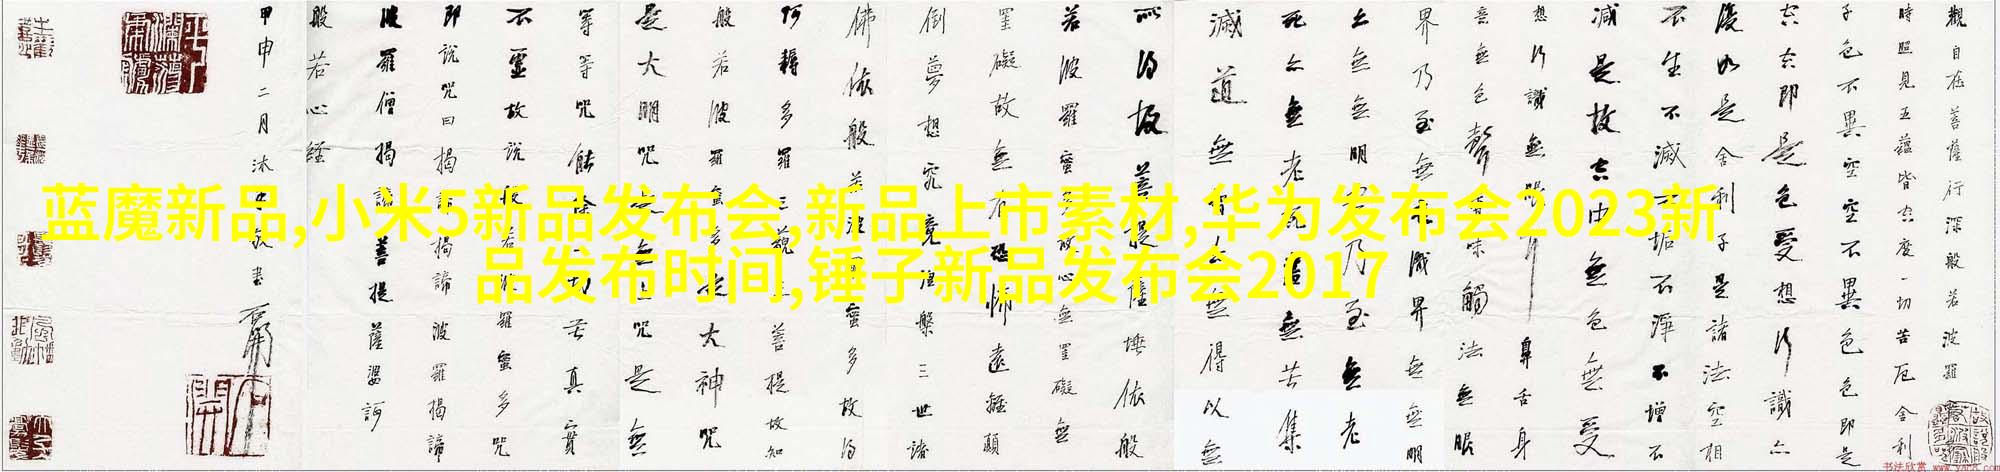 蓝魔新品,小米5新品发布会,新品上市素材,华为发布会2023新
品发布时间,锤子新品发布会2017
觀自在菩薩行深般若波羅
時照見五蘊皆空度一切苦厄舍利
子色不異空空不異色色即是
空空即是色受想行識亦
復如是舍利子是諸法空相
不生不滅不垢不淨不增不
減是故空中無色無受
想行識無眼鼻舌身
意無色聲香味觸法無眼
界乃至無識界無無明
亦無無明乃至無老
死亦無老死盡無苦集
滅道無智亦無得以無
所得故菩提薩埵依般
若波羅蜜多故心無罣礙無
罣礙故無有恐怖遠離顛
倒夢想究竟涅槃三世諸
佛依般若波羅蜜多故得
阿耨多羅三藐三菩提故知
般若波羅蜜多是大神咒
是大明咒是無上咒是無
等等咒能除一切苦真實
不虛故說般若波羅蜜多咒
即說咒曰揭諦揭諦波羅揭諦
波羅僧揭諦菩提薩婆訶
般若心經
甲申二月沐手敬書
书法欣赏